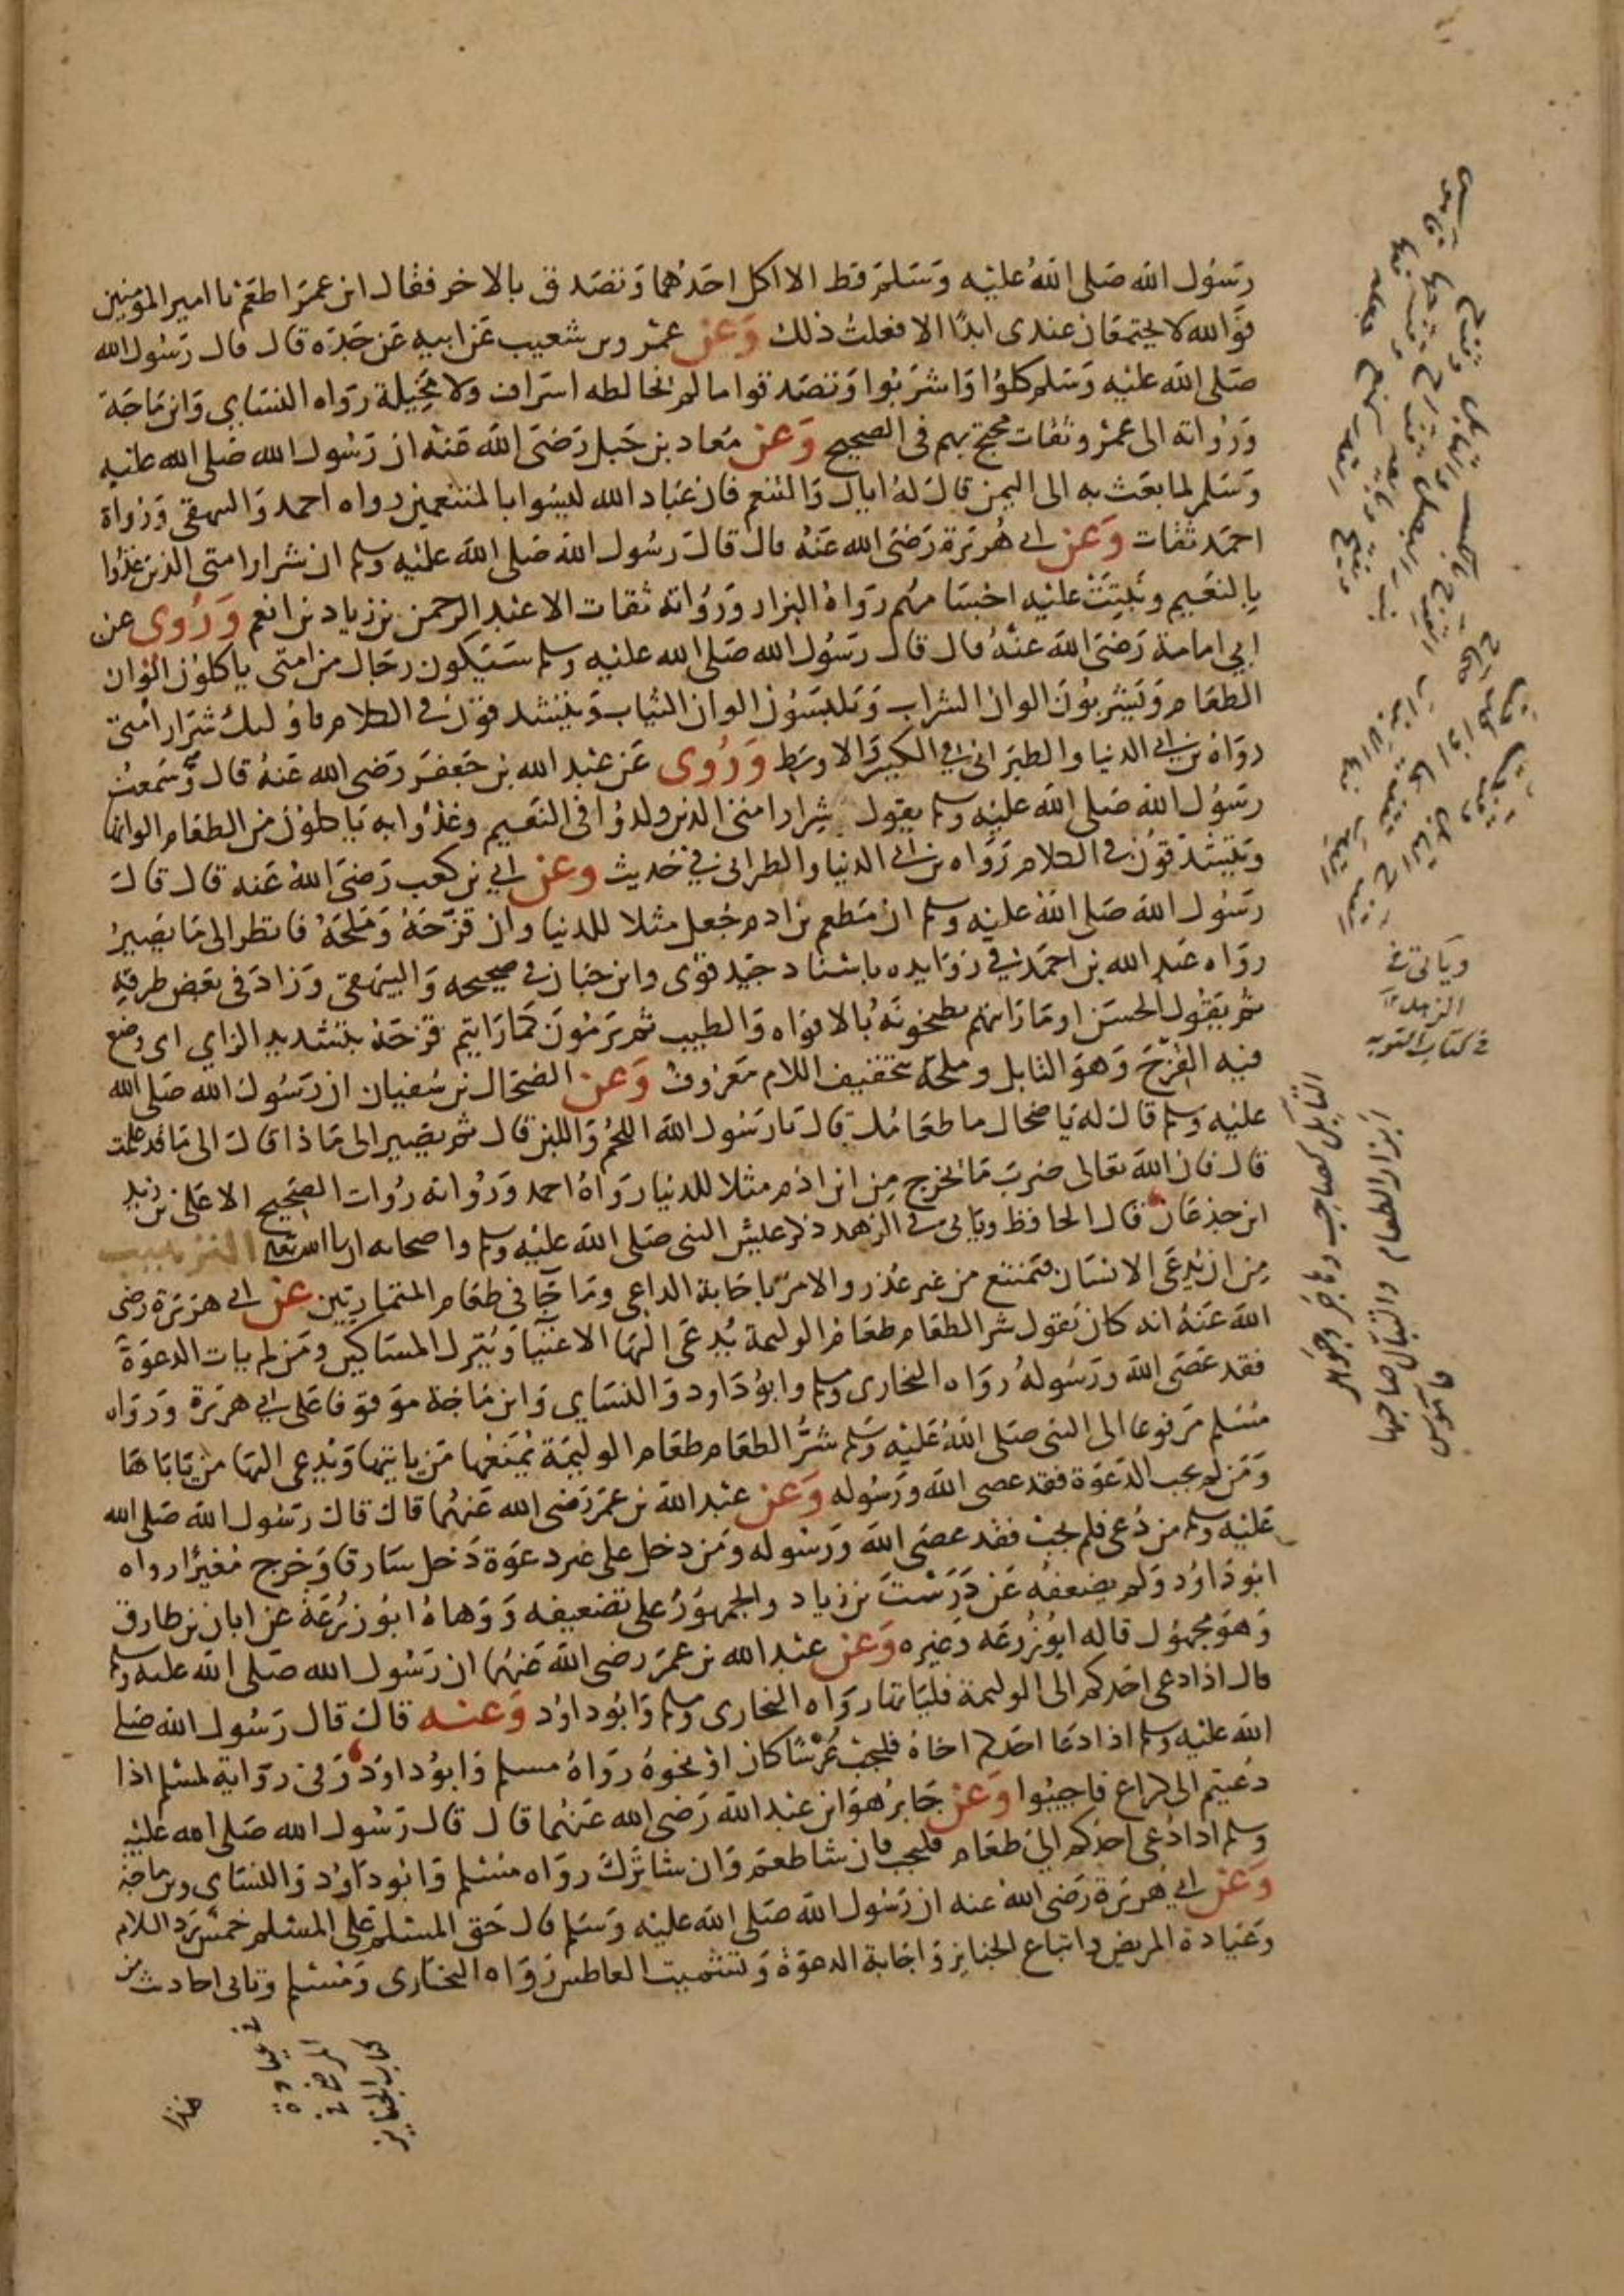 رسول الله صلى الله عليه وسلم قط الا اكل احدهما وتصدق بالاخر فقال ابن عمر اطعم يا امير المومنين
فوالله لا يجتمعان عندى ابدا الا فعلت ذلك وعن عمرو بن شعيب عن ابيه عن جده قال قال رسول الله
صلى الله عليه وسلم كلوا واشربوا وتصدقوا ما لم يخالطه اسراف ولا مخيلة رواه النساي وابن ماجة
ورواته الى عمرو ثقات محتج بهم فى الصحيح وعن معاد بن جبل رضى الله عنه ان رسول الله صلى الله عليه
وسلم لما بعث به الى اليمن قال له اياك والتنعم فان عباد الله ليسوا بالمتنعمين رواه احمد والبيهقى ورواة
احمد ثقات وعن ابى هريرة رضى الله عنه قال قال رسول الله صلى الله عليه وسلم ان شرار امتى الذين غذوا
بالنعيم ونبتت عليه اجسامهم رواه البزار ورواته ثقات الا عبد الرحمن بن زياد بن انعم وروى عن
ابي امامة رضى الله عنه قال قال رسول الله صلى الله عليه وسلم سيكون رجال من امتى ياكلون الوان
الطعام ويشربون الوان الشراب ويلبسون الوان الثياب ويتشدقون فى الكلام فاوليك شرار امتى
رواه بن ابى الدنيا والطبرانى فى الكبير والاوسط وروى عن عبد الله بن جعفر رضى الله عنه قال سمعت
رسول الله صلى الله عليه وسلم يقول شرار امتى الذين ولدوا فى النعيم وغذوا به ياكلون من الطعام الوانا
ويتشدقون فى الكلام رواه بن ابى الدنيا والطبرانى فى حديث وعن ابي بن كعب رضى الله عنه قال قال
رسول الله صلى الله عليه وسلم ان مطعم بن ادم جعل مثلا للدنيا وان قزحه وملحه فانظر الى ما يصير
رواه عبد الله بن احمد فى زوايده باسناد جيد قوى وابن حبان فى صحيحه والبيهقى وزاد فى بعض طرقه
ثم يقول الحسن او ما رايتهم يطبخونه بالافواه والطيب ثم يرمون كما رايتم قزحه بتشديد الزاي اى وضع
فيه القزح وهو التابل وملحه بتخفيف اللام معروف وعن الضحاك بن سفيان ان رسول الله صلى الله
عليه وسلم قال له يا ضحاك ما طعامك قال يا رسول الله اللحم واللبن قال ثم يصير الى ماذا قال الى ما قد علمت
قال فان الله تعالى ضرب ما يخرج من ابن ادم مثلا للدنيا رواه احمد ورواته روات الصحيح الا على بن زيد
ابن جذعان قال الحافظ وياتى فى الزهد ذكر عيش النبى صلى الله عليه وسلم واصحابه ان شا الله تعالى الترهيب
من ان يدعى الانسان فيمتنع من غير عذر والامر باجابة الداعى وما جا فى طعام المتباريين عن ابى هريرة رضى
الله عنه انه كان يقول شر الطعام طعام الوليمة يدعى اليها الاغنيا ويترك المساكين ومن لم يات الدعوة
فقد عصى الله ورسوله رواه البخارى ومسلم وابو داود والنساي وابن ماجة موقوفا على ابى هريرة ورواه
مسلم مرفوعا الى النبى صلى الله عليه وسلم شر الطعام طعام الوليمة يمنعها من ياتيها ويدعى اليها من ياباها
ومن لم يجب الدعوة فقد عصى الله ورسوله وعن عبد الله بن عمر رضى الله عنهما قال قال رسول الله صلى الله
عليه وسلم من دعى فلم يجب فقد عصى الله ورسوله ومن دخل على غير دعوة دخل سارقا وخرج مغيرا رواه
ابو داود ولم يضعفه عن درست بن زياد والجمهور على تضعيفه ووهاه ابو زرعة عن ابان بن طارق
وهو مجهول قاله ابو زرعة وغيره وعن عبد الله بن عمر رضى الله عنهما ان رسول الله صلى الله عليه وسلم
قال اذا دعى احدكم الى الوليمة فلياتها رواه البخارى ومسلم وابو داود وعنه قال قال رسول الله صلى
الله عليه وسلم اذا دعا احدكم اخاه فليجب عرسا كان او نحوه رواه مسلم وابو داود وفى رواية لمسلم اذا
دعيتم الى كراع فاجيبوا وعن جابر هو ابن عبد الله رضى الله عنهما قال قال رسول الله صلى الله عليه
وسلم اذا دعى احدكم الى طعام فليجب فان شا طعم وان شا ترك رواه مسلم وابو داود والنساى وبن ماجة
وعن ابى هريرة رضى الله عنه ان رسول الله صلى الله عليه وسلم قال حق المسلم على المسلم خمس رد السلام
وعيادة المريض واتباع الجنايز واجابة الدعوة وتشميت العاطس رواه البخارى ومسلم وتاتى احاديث من
وياتى فى
الزهد
فى كتاب التوبه
التابل كصاحب وهاجر وجوهر
ابزار الطعام والتبال صاحبها
قاموس
كتاب الجنايز
هذا